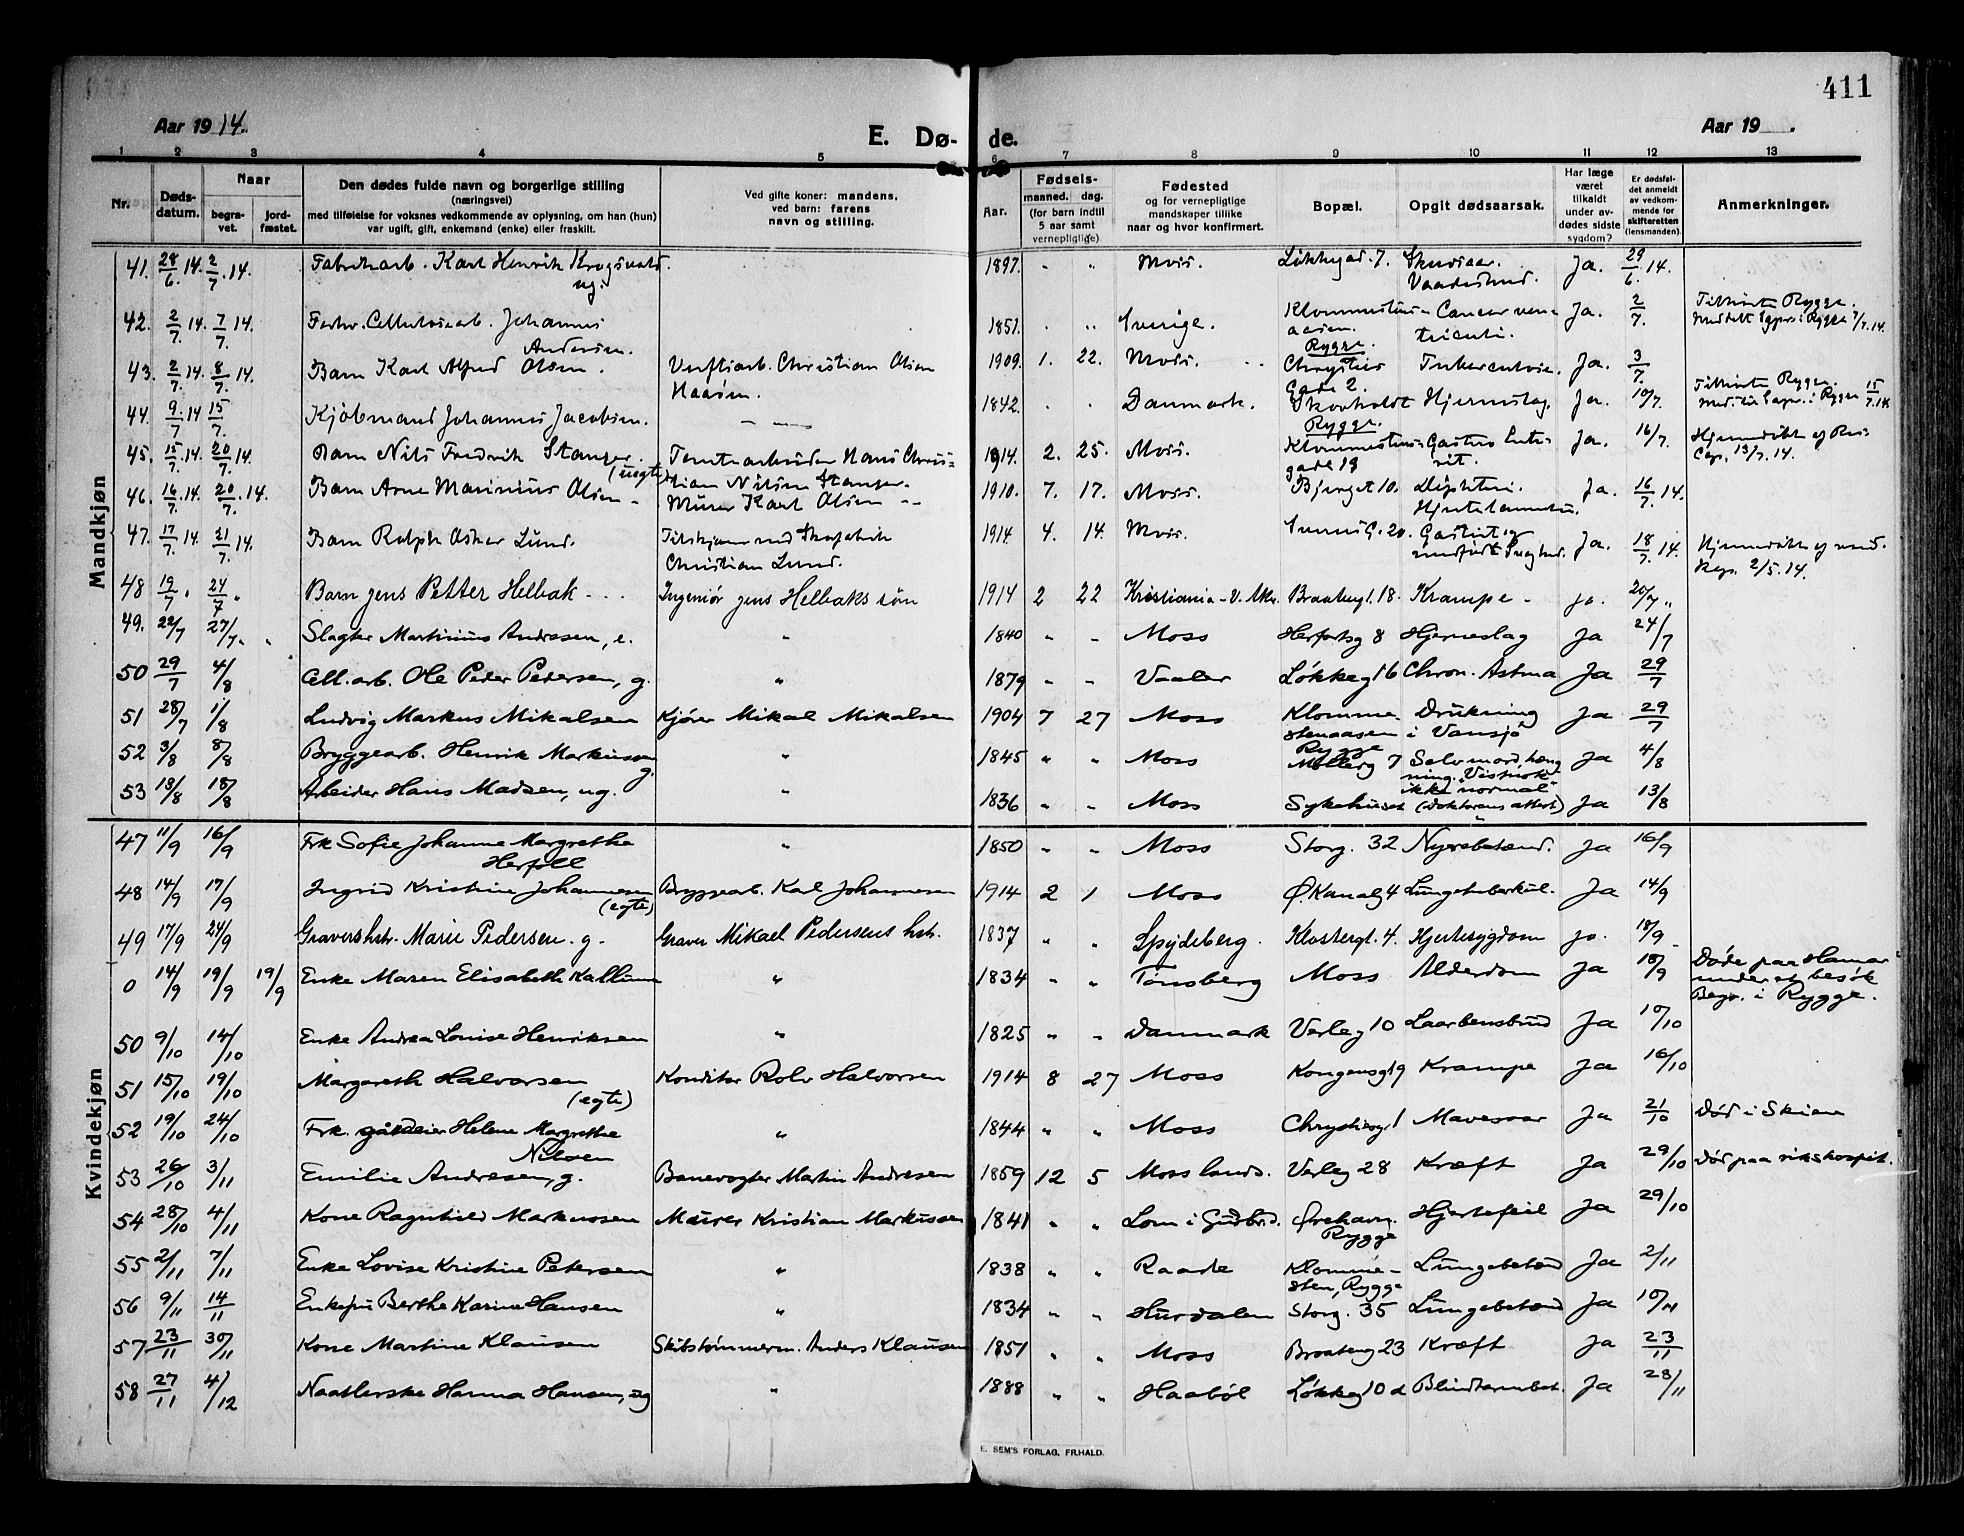 411
Aar 1914.
E. Dø- de.
Aar 19 .
1 2 3 4 5 6 7 8 9 10 11 12 13
Nr. Dødsdatum. Naar begravet. jordfæstet.
Den dødes fulde navn og borgerlige stilling
(næringsvei)
med tilføielse for voksnes vedkommende av oplysning, om han (hun)
var ugift, gift, enkemand (enke) eller fraskilt.
Ved gifte koner: mandens,
ved barn: farens
navn og stilling.
Aar. Fødsels- maaned. dag.
(for barn indtil 5 aar samt vernepligtige)
Fødested
og for vernepligtige
mandskaper tillike
naar og hvor konfirmert.
Bopæl. Opgit dødsaarsak.
Har læge været tilkaldt under avdødes sidste sygdom?
Er dødsfaldet anmeldt av vedkommende for skifteretten (lensmanden).
Anmerkninger.
Mandkjøn
41. 28/6 14. 2/7 14. Fabrikarb. Karl Henrik Krogsvold ug. 1897. " " Moss. Løkkegad. 7. Skudsaar. Vaadeskud. Ja. 29/6 14.
42. 2/7 14. 7/7 14. Forhv. Celluloseab. Johannes Andersen. 1851. " " Sverige. Klommestens-aasen. Rygge. Cancer ventriculi. Ja. 2/7. Tilhørte Rygge.
43. 2/7 14. 8/7 14. Barn Karl Alfred Olsen. Verftsarb. Christian Olsen Haasen. 1909. 1. 22. Moss. Chrysties Gade 2. Tuberculose. Ja. 3/7.
44. 9/7 14 15/7. Kjøbmand Johannes Jacobsen. — — 1842. " " Danmark. Skovholdt Rygge. Hjerneslag. Ja. 10/7. Tilhørte Rygge. 15/7.14
45. 15/7 14. 20/7 14. Barn Nils Fredrik Stanger. (uegte) Tomtearbeider Hans Christian Nilsen Stanger. 1914. 2. 25. Moss. Klommestens-gade 19 Gastro Enterit. Ja. 16/7. Hjemmedøbt
46. 16/7 14. 20/7 14. Barn Arne Marinius Olsen - Murer Karl Olsen -- 1910. 7. 17. Moss. Bjerget 10. Diphteri. Hjertelammelse. Ja. 16/7 14.
47. 17/7 14. 21/7 14. Barn Ralph Oskar Lund. Tilskjærer ved Skofabrik Christian Lund. 1914. 4. 14. Moss. G. 20. Gastrit og medfødt Svaghed. Ja. 18/7 14. Hjemmedøbt 2/5.14.
48 19/7 " 24/7 " Barn Jens Petter Helbak - - - Ingeniør Jens Helbaks søn 1914 2 22 Kristiania - V. Aker. Braatengt. 18. Krampe - ja. 20/7 "
49. 22/7 27/7 " " Slagter Martinius Andresen, e. " 1840 " " Moss Herfortsg 8 Hjerneslag Ja 24/7
50 29/7 4/8 Cell. arb. Ole Peder Pedersen, g. " 1879 " " Vaaler Løkkeg 16 Chron. Astma Ja 29/7
51 28/7 1/8 Ludvig Markus Mikalsen Kjører Mikal Mikalsen 1904 7 27 Moss Klommestenaasen Rygge Drukning i Vansjø Ja 29/7
52 3/8 8/8 Bryggearb. Henrik Markussen g. " 1845 " " Moss Møllerg 7 Selvmord, hængning. "Vistnok ikke normal" (doktorens attest) Ja 4/8
53 13/8 18/8 Arbeider Hans Madsen, ug. " 1836 " " Moss Sykehuset " Ja 13/8
Kvindekjøn
47 11/9 16/9 Frk Sofie Johanne Margrethe Herföll " 1850 " " Moss Storg. 32 Nyrebetænd. Ja 16/9
48 14/9 17/9 Ingrid Kristine Johannesen (egte) Bryggearb. Karl Johannesen 1914 2 1 Moss Ø. Kanalg 4 Lungetuberkul. Ja 14/9
49 17/9 24/9 Gravershstr. Marie Pedersen. g. Graver Mikael Pedersens hstr. 1837 " " Spydeberg. Klostergt. 4. Hjertesygdom ja. 18/9
0 14/9 19/9 19/9 Enke Maren Elisabeth Kallum " 1834 " " Tønsberg Moss Alderdom Ja 18/9 Døde paa Hamar under et besøk Begr. i Rygge.
50 9/10 14/10 Enke Andrea Louise Henriksen " 1825 " " Danmark Verleg 10 Laarbensbrud Ja 10/10
51 15/10 19/10 Margareth Halvorsen (egte) Konditor Rolv Halvorsen 1914 8 27 Moss Kongensg 19 Krampe Ja 16/10
52 19/10 24/10 Frk. gårdeier Helene Margrethe Nilsen " 1844 " " Moss Chrystiesg 1 Mavesaar Ja 21/10 Død i Skien
53 26/10 3/11 Emilie Andresen, g. Banevogter Martin Andresen 1859 12 5 Moss lands. Verleg 28 Kræft Ja 29/10 Død paa rikshospit.
54 28/10 4/11 Kone Ragnhild Markussen Murer Kristian Markussen 1841 " " Lom i Gudbrd. Ørehavn. Rygge Hjertefeil Ja 29/10
55 2/11 7/11 Enke Lovise Kristine Petersen " 1838 " " Raade Klommesten, Rygge Lungebetænd Ja 2/11
56 9/11 14/11 Enkefru Berthe Karine Hansen " 1834 " " Hurdalen Storg. 35 Lungebetænd Ja 10/11
57 23/11 30/11 Kone Martine Klausen Skibstømmerm. Anders Klausen 1851 " " Moss Braateng 23 Kræft Ja 23/11
58 27/11 4/12 Naatlerske Hanna Hansen, ug " 1888 " " Haabøl Løkkeg 10 d Blindtarmsbet. Ja 28/11
E. SEM'S FORLAG, FR.HALD.